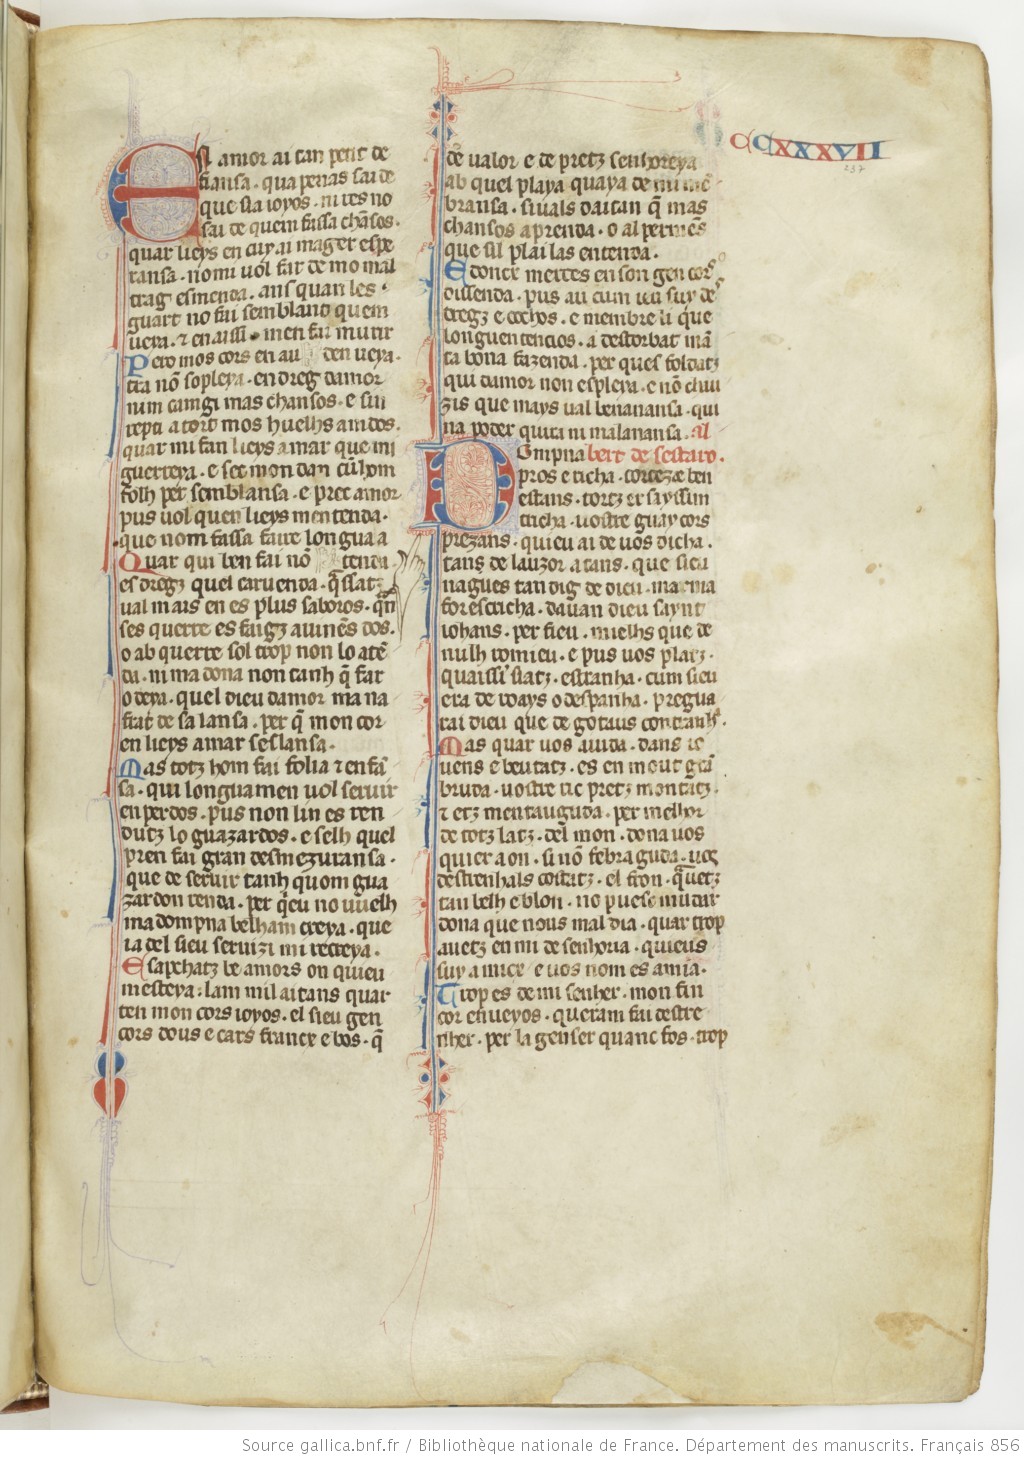 CCXXXVII
237
En amor ai tan petit de
fiansa · qua penas sai de
que sia ioyos · ni res no
sai de quem fassa chãsos ·
quar lieys en cuy ai mager espe
ransa · no mi uol far de mo mal
trag esmenda · ans quan les
guart no fai semblant quem
ueia · et en aissi · men fai murir
Pero mos cors en au den ueya ·
tra nõ sopleya · en dreg damor
num camgi mas chansos · e sin
repti a tort mos huelhs amdos ·
quar mi fan lieys amar que mi
guerreya · e sec mon dan cũ hom
folh per semblansa · e prec amor
pus uol quen lieys men tenda ·
que nom fassa faire longua a
Quar qui ben fai nõ tenda ·
es dregz quel caruenda · q̃ssatz
ual mais en es plus saboros · qñ
ses querre es faigz auinẽs dos ·
o ab querre sol trop non lo atẽ
da · ni ma dona non tanh q̃ fai
o deya · quel dieu damor ma na
frat de sa lansa · per q̃ mon cor
en lieys amar seslansa ·
Mas totz hom fai folia et enfã
sa · qui longuamen uol seruir
en perdos · pus non lin es ren
dutz lo guazardos · e selh quel
pren fai gran desmezuransa ·
que de seruir tanh quom gua
zardon renda · per q̃eu no uuelh
ma dompna belham creya · que
ia del sieu seruizi mi recreya ·
E sapchatz be amors on quieu
mesteya · lam mil aitans quar
ten mon cors ioyos · el sieu gen
cors dous e cars francx e bos · q̃
de ualor e de pretz senhoreya
ab quel playa quaya de mi mẽ
bransa · siuals daitan q̃ mas
chansos aprenda · o al permẽs
que sil plai las entenda ·
E doncx merces en son gen cors
dissenda · pus
dregz e cochos · e membre li que
longuen tencios · a destorbat mã
ta bona fazenda · per ques foldatz
qui damor non espleya · e nõ chau
zis que mays ual benanansa · qui
na poder quira ni malanansa · Al
bert de sestaro ·
Dompna
pros e richa · cortez e ben
estans · tortz er si yssim
tricha · uostre guay cors
prezans · quieu ai de uos dicha ·
tans de lauzor a tans · que sieu
nagues tan dig de dieu · ma rma
for escricha · dauan dieu saynt
iohans · per fieu · mielhs que de
nulh romieu · e pus uos platz ·
quaissi siatz · estranha · cum sieu
era de roays o despanha · pregua
rai dieu que de gotaus contranhª ·
Mas quar uos aiuda · dans ie
uens e beutatz · es en mout grã
bruda · uostre ric pretz montatz ·
et etz mentauguda · per melhor
de totz latz · del mon · dona uos
quier aon · si nõ febra guda · uos
destrenhals costatz · el fron · quaretz
tan belh e blon · no puesc mudar
dona que nous mal dia · quar trop
auetz en mi de senhoria · quieus
suy amicx e uos nom es amia ·
Trop es de mi senher · mon fin
cor enueyos · queram fai destre
nher · per la genser quanc fos · trop
Source gallica.bnf.fr / Bibliothèque nationale de France. Département des manuscrits. Français 856